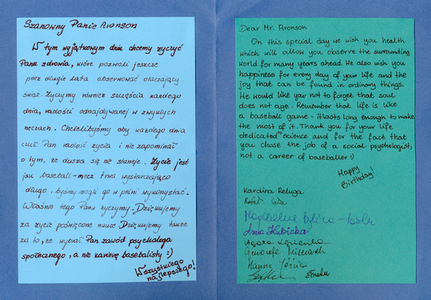 Szanowny Panie Aronson
W tym wyjątkowym dniu chcemy życzyć
Panu zdrowia, które pozwoli jeszcze
przez długie lata obserwować otaczający
świat. Życzymy również szczęścia każdego
dnia, radości odnajdywanej w zwykłych
rzeczach. Chcielibyśmy aby każdego dnia
czuł Pan radość życia i nie zapominał
o tym, że dusza się nie starzeje. Życie jest
jak baseball - mecz trwa wystarczająco
długo, byśmy mogli go w pełni wykorzystać.
Właśnie tego Panu życzymy. Dziękujemy
za życie poświęcone nauce. Dziękujemy także
za to, że wybrał Pan zawód psychologa
społecznego, a nie karierę baseballisty :)
Wszystkiego
najlepszego!
Dear Mr. Aronson
On this special day we wish you health
which will allow you observe the surrounding
world for many years ahead. We also wish you
happiness for every day of your life and the
joy that can be found in ordinary things.
We would like you not to forget that soul
does not age. Remember that life is like
a baseball game - it lasts long enough to make
the most of it. Thank you for your life
dedicated science and for the fact that
you chose the job of a social psychologist,
not a career of baseballer :)
Happy
Birthday!
Karolina Reluga
Magdalena
Anna